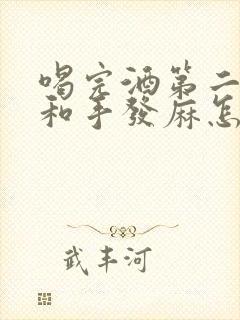 喝完酒第二
和手發麻怎
武丰河